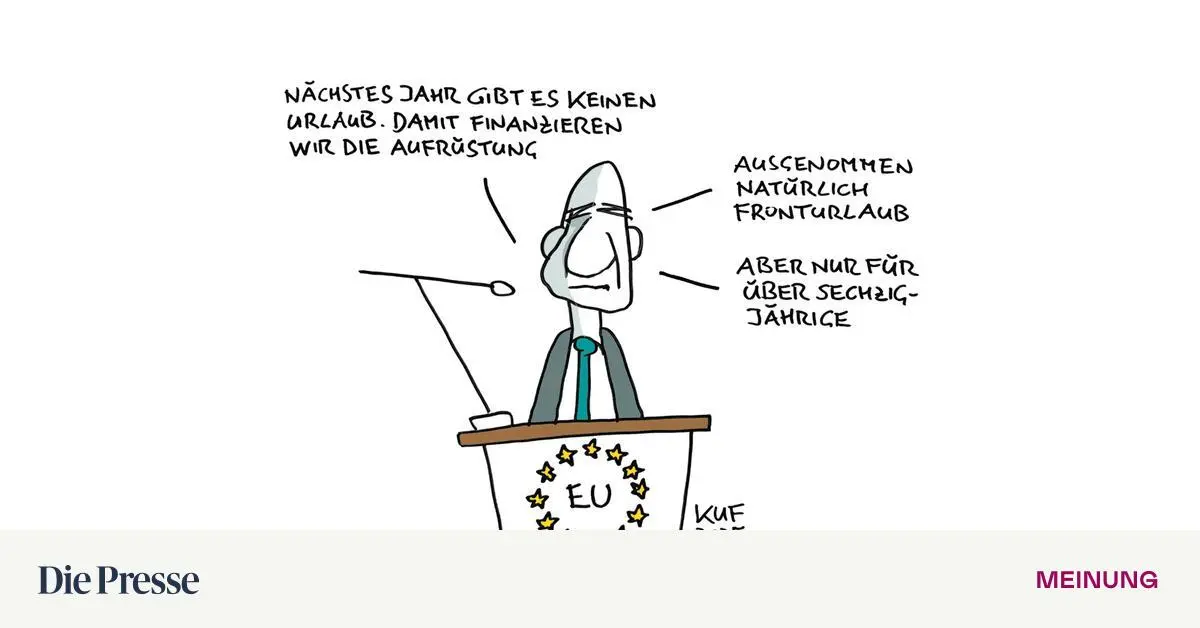 NÄCHSTES JAHR GIBT ES KEINEN
URLAUB. DAMIT FINANZIEREN
WIR DIE AUFRÜSTUNG
AUSGENOMMEN
NATÜRLICH
FRONTURLAUB
ABER NUR FÜR
ÜBER SECHZIG-
JÄHRIGE
EU
KUF
Die Presse
MEINUNG